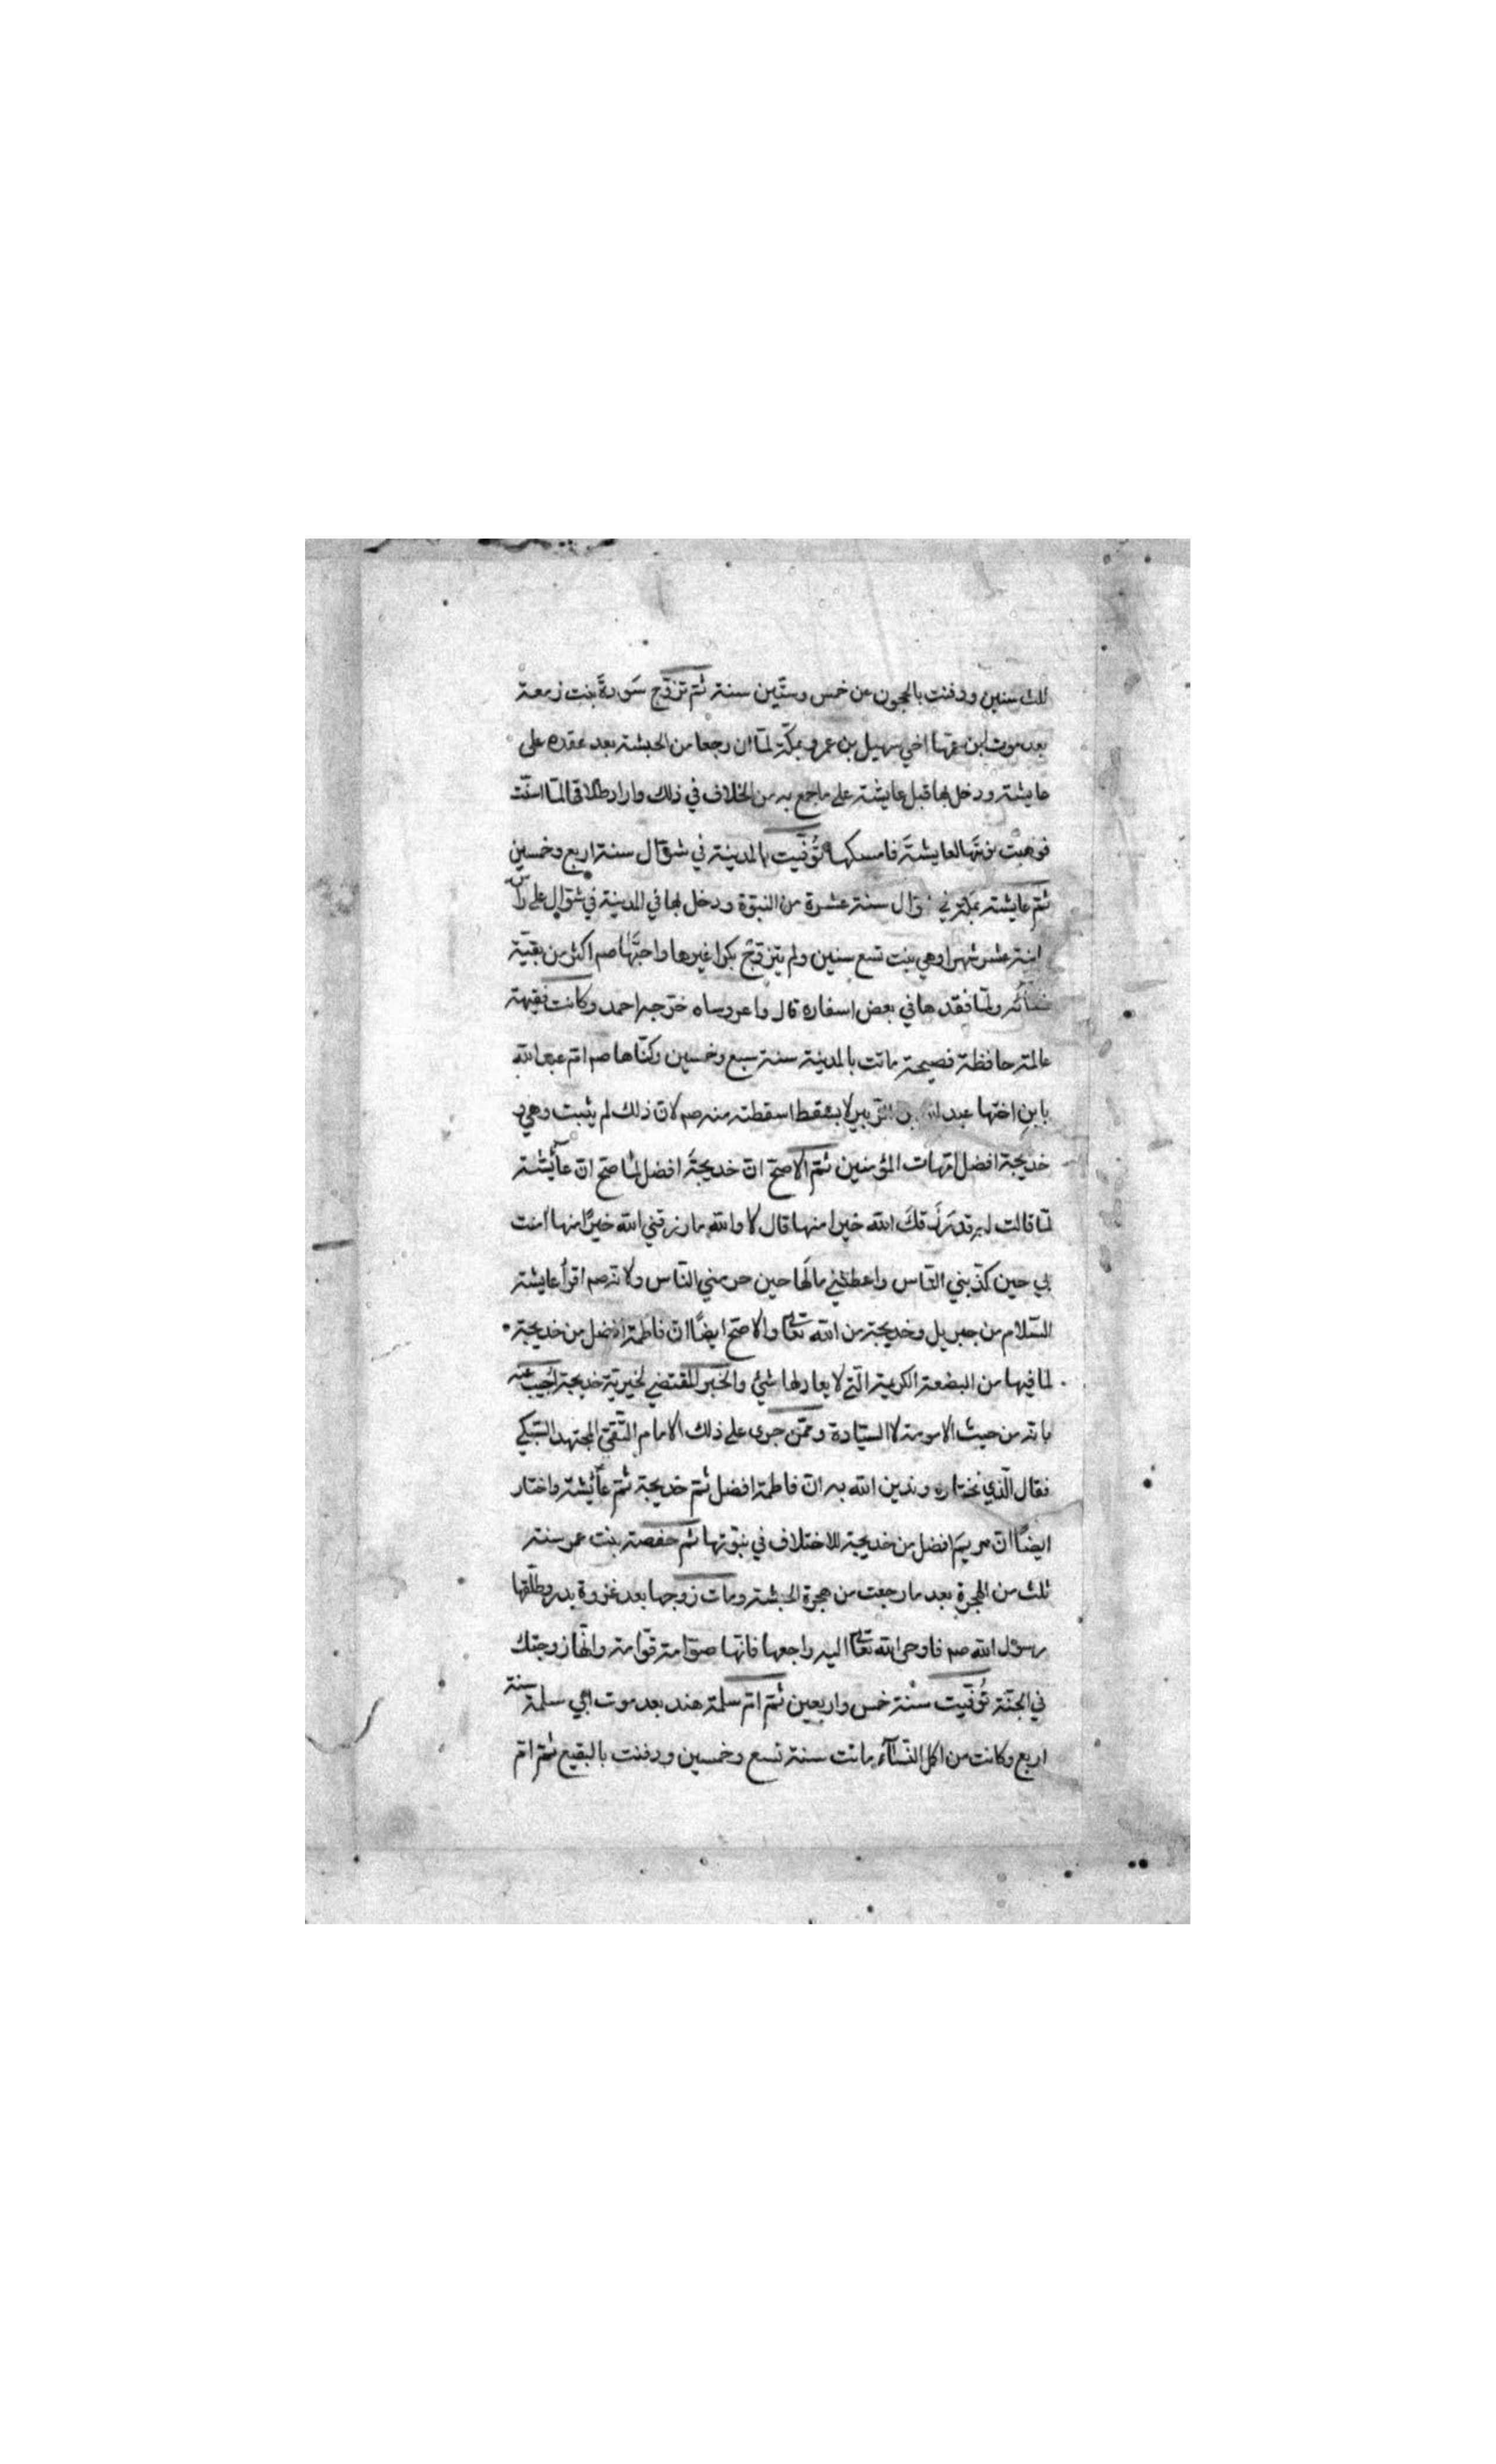 ثلث سنين ودفنت بالحجون عن خمس وستّين سنة ثم تزوّج سَودةَ بنت زمعة
بعد موت ابن عمّها اخي سهيل بن عمرو بمكّة لمّا ان رجعا من الحبشة بعد عقده على
عايشة ودخل بها قبل عايشة على ما جمع به من الخلاف في ذلك واراد طلاقها لمّا اسنّت
فوهبت نوبتها لعايشةَ فامسكها تُوُفّيت بالمدينة في شوّال سنة اربع وخمسين
ثم عايشة بمكّة في شوّال سنة عشرة من النبوّة ودخل بها في المدينة في شوّال على رأس
ثمانية عشر شهرا وهي بنت تسع سنين ولم يتزوّج بكرا غيرها واحبّها صم اكثر من بقيّة
نسآئه ولمّا فقدها في بعض اسفاره قال واعروساه خرّجه احمد وكانت فقيهة
عالمة حافظة فصيحة ماتت بالمدينة سنة سبع وخمسين وكنّاها صم امّ عبد الله
بابنِ اختها عبد الله بن الزّبير لا بسقط اسقطته منه صم لانّ ذلك لم يثبت وهي و
خديجة افضل امّهات المؤمنين ثمّ الاصحّ انّ خديجةَ افضل لما صحّ انّ عآئشة
لمّا قالت له قد رَزَقكَ الله خيرا منها قال لا والله ما رزقني الله خيرًا منها امنت
بي حين كذّبني النّاس واعطتني مالَها حين حرمني النّاس ولانه صم اقرأ عايشة
السّلام من جبريل وخديجة من الله تعالى والاصحّ ايضًا انّ فاطمة افضل من خديجة
لما فيها من البضعة الكريمة الّتي لا يعادلها شئ والخبر المقتضي لخيريّة خديجة اُجيب عنه
بانّه من حيث الامومة لا السيّادة وممّن جرى على ذلك الامام التّقيّ المجتهد السّبكي
فقال الّذي نختاره وندين الله به انّ فاطمة افضل ثمّ خديجة ثمّ عآئشة واختار
ايضًا انّ مريمَ افضل من خديجة للاختلاف في نبوّتها ثم حفصة بنت عمر سنة
ثلث من الهجرة بعد ما رجعت من هجرة الحبشة ومات زوجها بعد غزوة بدر وطلّقها
رسول الله صم فاوحى الله تعالى اليه راجعها فانّها صوّامة قوّامة وانّها زوجتك
في الجنّة تُوُفّيت سنة خمس واربعين ثمّ امّ سلمة هند بعد موت ابي سلمة سنة
اربع وكانت من اكمل النّسآء ماتت سنة تسع وخمسين ودفنت بالبقيع ثمّ امّ